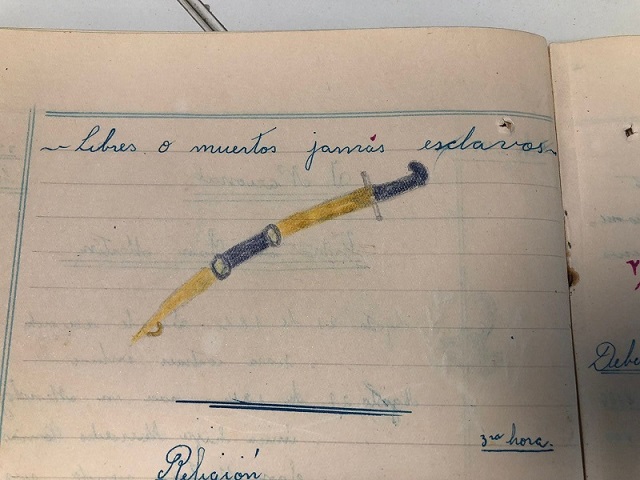 ~ Libres o muertos jamás esclavos ~
3ra hora.
Religión
Debe